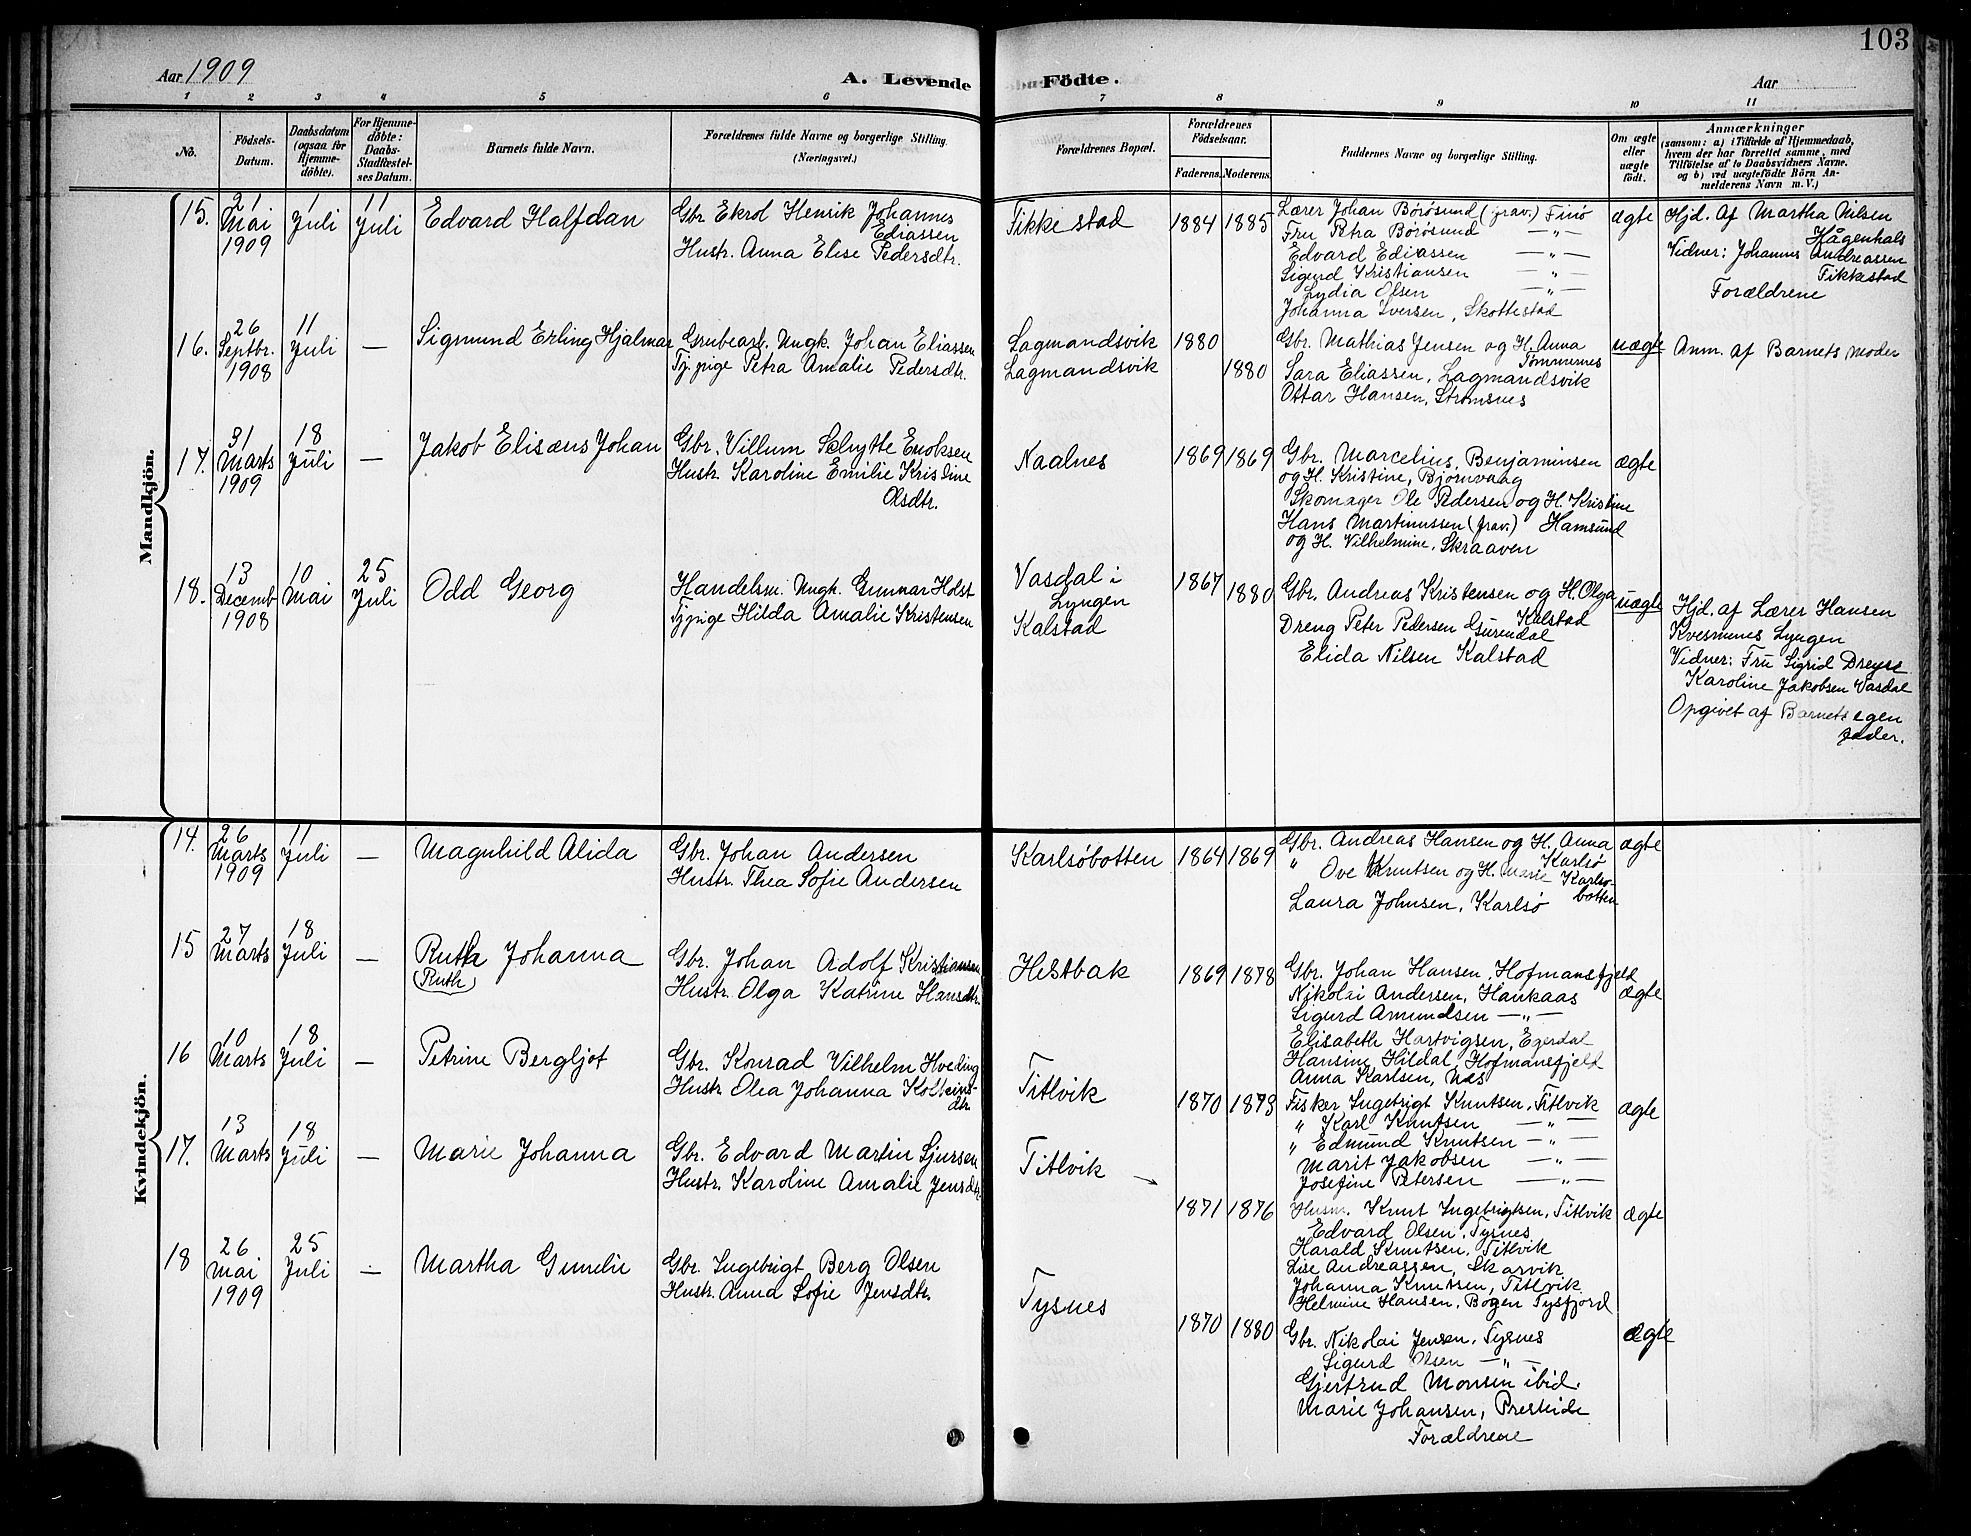 103
Aar 1909
A. Levende Födte.
Aar
1 2 3 4 5 6 7 8 9 10 11
No.
Födsels-Datum.
Daabsdatum (ogsaa for Hjemmedöbte).
For Hjemmedöbte: Daabs-Stadfæstelses Datum.
Barnets fulde Navn.
Forældrenes fulde Navne og borgerlige Stilling. (Næringsvei.)
Forældrenes Bopæl.
Forældrenes Födselsaar.
Faderens. Moderens.
Faddernes Navne og borgerlige Stilling.
Om ægte eller uægte födt.
Anmærkninger
(saasom: a) i Tilfælde af Hjemmedaab, hvem der har forrettet samme, med Tilföielse af to Daabsvidners Navne. og b) ved uægtefödte Börn Anmelderens Navn m. V.)
Mandkjön.
15. 21 Mai 1909
11 Juli
11 Juli
Edvard Halfdan
Gbr Ekrol Henrik Johannes
Ediassen
Hustr. Anna Elise Pedersdtr.
Tikkestad
1884 1885
Lærer Johan Börösund (frav.) Finö
Fru Petra Börösund — " —
Edvard Ediassen — " —
Sigurd Kristiansen — " —
Lydia Olsen — " —
Johanna Iversen, Skottestad
ægte
Hjd. af Martha Nilsen
Hågenhals
Vidner: Johannes Andreassen
Tikkestad
Forældrene
16. 26 Septbr. 1908
11 Juli
—
Sigmund Erling Hjalmar
Grubearb. Ungk. Johan Eliassen
Tj. pige Petra Amalie Pedersdtr.
Lagmandsvik
Lagmandsvik
1880
1880
Gbr. Mathias Jensen og H. Anna
Tömmernes
Sara Eliassen, Lagmandsvik
Ottar Hansen, Strömsnes
uægte
Anm. af Barnets Moder
17. 31 Marts 1909
18 Juli
—
Jakob Elisæus Johan
Gbr. Villum Schytte Enoksen
Hustr. Karoline Emilie Kristine
Olsdtr.
Naalnes
1869 1869
Gbr. Marcelius Benjaminsen
og H. Kristine, Bjornvaag
Skomager Ole Pedersen og H. Kristine
Hans Martinussen (frav.) Hamsund
og H. Vilhelmine, Skraaven
ægte
18. 13 Decemb 1908
10 Mai
25 Juli
Odd Georg
Handelsm. Ungk. Gunnar Holst
Tjpige Hilda Amalie Kristensen
Vasdal i
Lyngen
Kalstad
1867
1880
Gbr. Andreas Kristensen og H. Olga
Kalstad
Dreng Peter Pedersen Gsurendal
Elida Nilsen Kalstad
uægte
Hjd. af Lærer Hansen
Kvesmenes Lyngen
Vidner: Fru Sigrid Dreyer
Karoline Jakobsen Vasdal
Opgivet af Barnets egen
fader.
Kvindekjön.
14. 26 Marts 1909
11 Juli
—
Magnhild Alida
Gbr. Johan Andersen
Hustr. Thea Sofie Andersen
Karlsöbotten
1864 1869
Gbr. Andreas Hansen og H. Anna
Karlsö
" Ove Knutsen og H. Marie Karlsö-
botten
Laura Johnsen, Karlsö
ægte
15 27 Marts
18 Juli
—
Ruth Johanna
(Ruth)
Gbr. Johan Adolf Kristiansen
Hustr. Olga Katrine Hansdtr.
Hestbak
1869 1878
Gbr. Johan Hansen, Hofmansfjeld
Nikolai Andersen, Haukaas
Sigurd Amundsen — " —
Elisabeth Hartvigsen, Egerdal
Hansine Hildal, Hofmansfjeld
Anna Karlsen, Næs
ægte
16 10 Marts
18 Juli
—
Petrine Bergljot
Gbr. Konrad Vilhelm Hveding
Hustr. Olea Johanna Kolbeins-
dtr.
Titlvik
1870 1873
Fisker Ingebrigt Knutsen, Titlvik
" Karl Knutsen — " —
" Edmund Knutsen — " —
Marit Jakobsen — " —
Josefine Petersen — " —
ægte
17. 13 Marts
18 Juli
—
Marie Johanna
Gbr. Edvard Martin Sjursen
Hustr. Karoline Amalie Jensdtr.
Titlvik
1871 1876
Husm. Knut Ingebrigtsen, Titlvik
Edvard Olsen, Tysnes
Harald Knutsen, Titlvik
Lise Andreassen, Skarvik
Johanna Knutsen, Titlvik
Helmine Hansen, Bogen Tysfjord
ægte
18 26 Mai 1909
25 Juli
—
Martha Gunelie
Gbr. Ingebrigt Berg Olsen
Hustr. Anna Sofie Jensdtr.
Tysnes
1870 1880
Gbr. Nikolai Jensen, Tysnes
Sigurd Olsen — " —
Gjertrud Monsen ibid.
Marie Johansen, Presteide
Forældrene
ægte